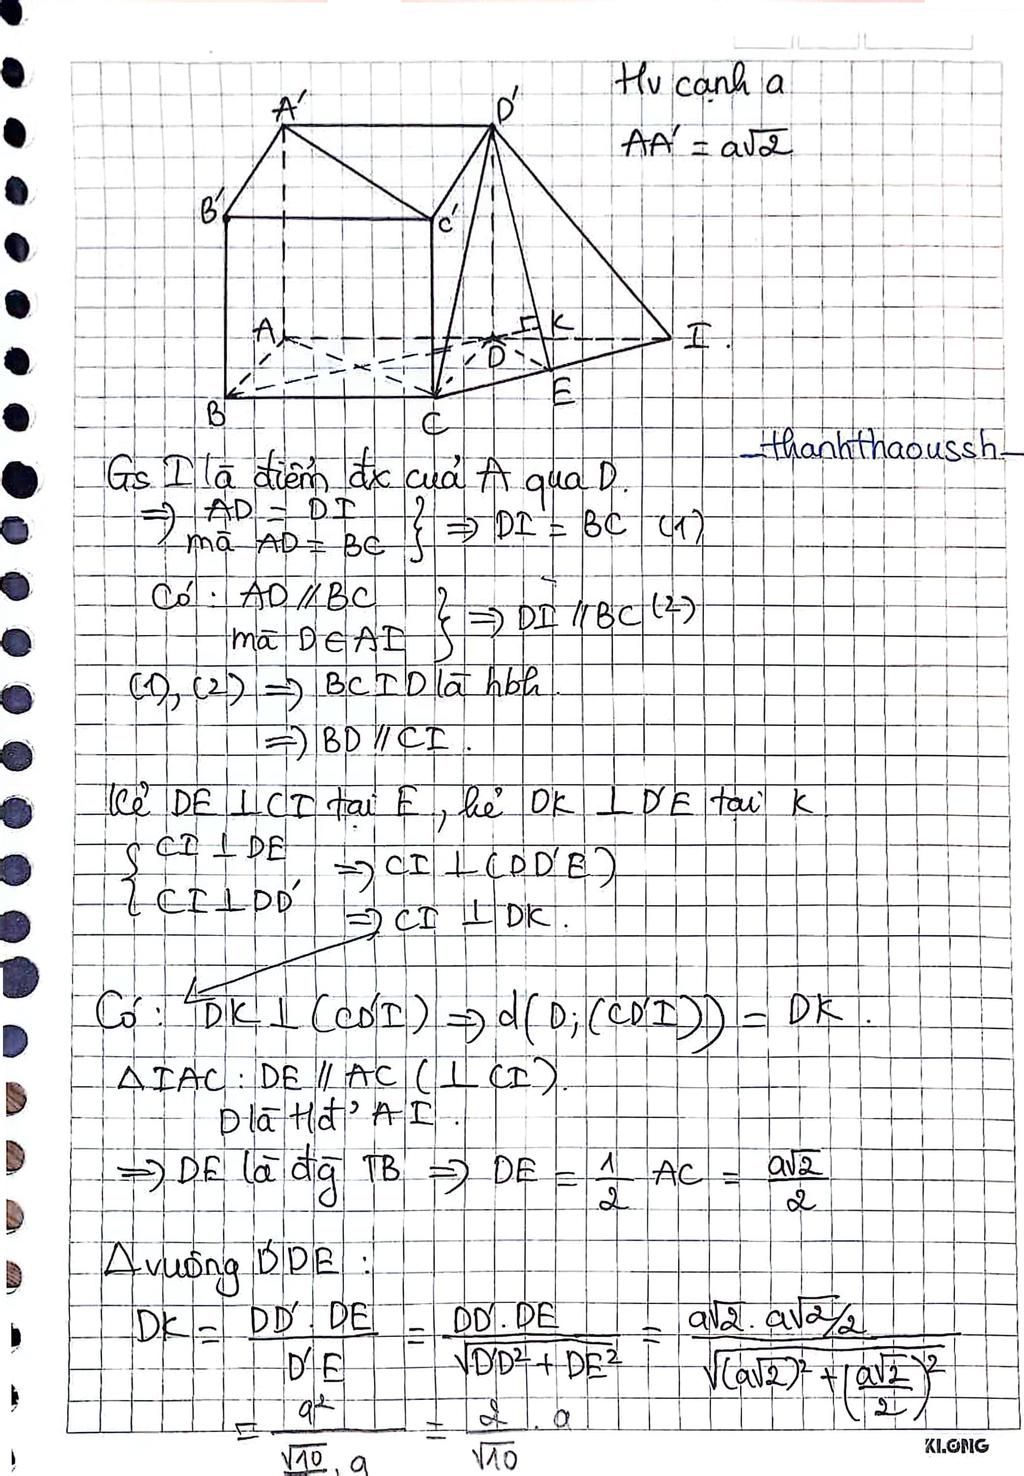 Hv cạnh a
AA' = a√2
A'
D'
B'
C'
A
D
K
I.
B
C
E
_thanhthaoussh_
Gs I là điểm đx của A qua D.
⇒ AD = DI
mà AD = BC } ⇒ DI = BC (1)
Có: AD // BC
mà D ∈ AI } ⇒ DI // BC (2)
(1), (2) ⇒ BCID là hbh.
⇒ BD // CI.
Kẻ DE ⊥ CI tại E, kẻ DK ⊥ D'E tại K
{ CI ⊥ DE ⇒ CI ⊥ (DD'E)
{ CI ⊥ DD' ⇒ CI ⊥ DK.
Có: DK ⊥ (CD'I) ⇒ d(D; (CD'I)) = DK.
Δ IAC: DE // AC (⊥ CI).
D là tđ' AI.
⇒ DE là đg TB ⇒ DE = 1/2 AC = a√2/2
Δ vuông D'DE:
DK = DD'.DE / D'E = DD'.DE / √(D'D² + DE²) = (a√2 . a√2/2) / √((a√2)² + (a√2/2)²)
= a² / (√10/2 . a) = 2/√10 . a
KLONG